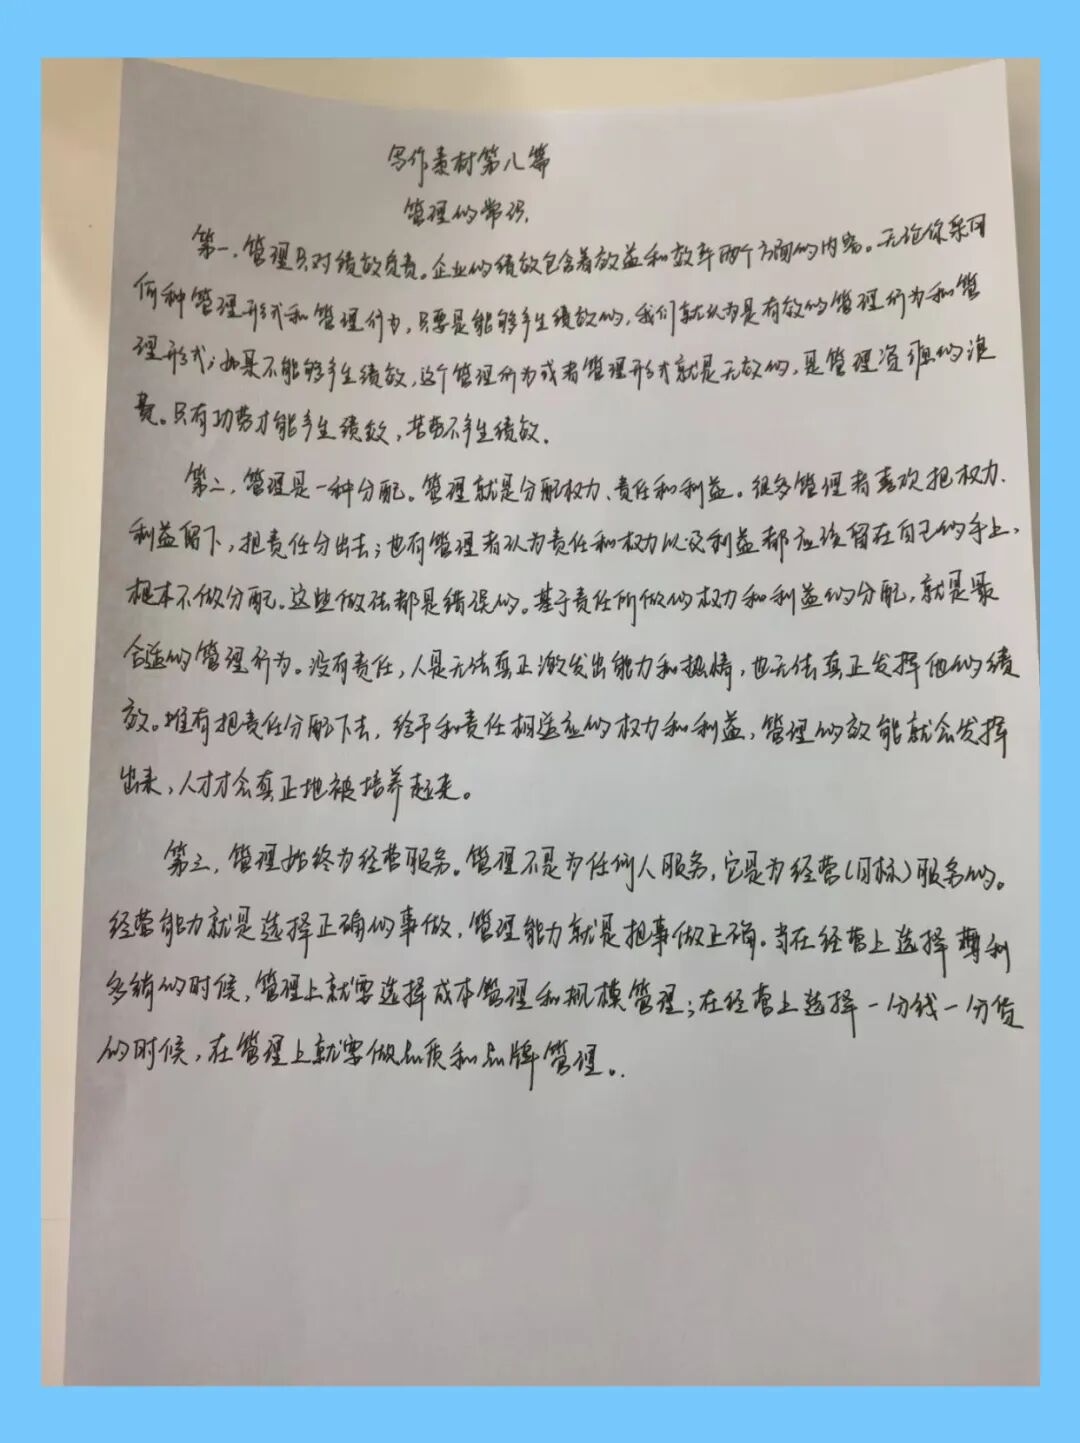 写作素材第八篇
管理的常识.
第一,管理只对绩效负责。企业的绩效包含着效益和效率两个方面的内容。无论你采用
何种管理形式和管理行为,只要是能够产生绩效的,我们就认为是有效的管理行为和管
理形式;如果不能够产生绩效,这个管理行为或者管理形式就是无效的,是管理资源的浪
费。只有功劳才能产生绩效,苦劳不产生绩效.
第二,管理是一种分配。管理就是分配权力、责任和利益。很多管理者喜欢把权力、
利益留下,把责任分出去;也有管理者认为责任和权力以及利益都应该留在自己的手上,
根本不做分配。这些做法都是错误的。基于责任所做的权力和利益的分配,就是最
合适的管理行为。没有责任,人是无法真正激发出能力和热情,也无法真正发挥他的绩
效。唯有把责任分配下去,给予和责任相适应的权力和利益,管理的效能就会发挥
出来,人才才会真正地被培养起来。
第三,管理始终为经营服务。管理不是为任何人服务,它是为经营(目标)服务的。
经营能力就是选择正确的事做,管理能力就是把事做正确。当在经营上选择薄利
多销的时候,管理上就要选择成本管理和规模管理;在经营上选择一分钱一分货
的时候,在管理上就要做品质和品牌管理。.